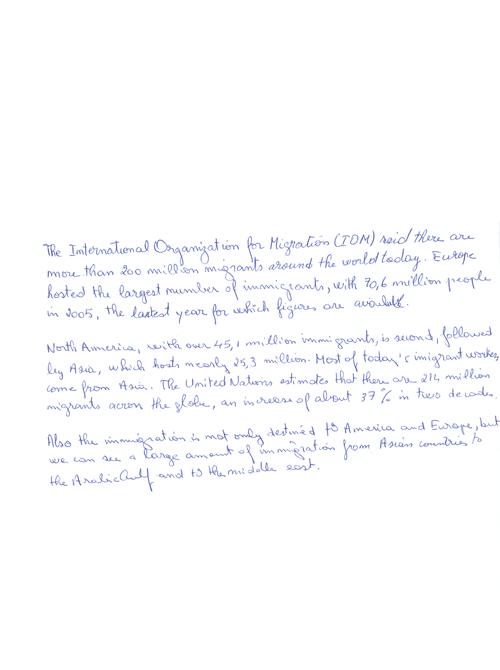 The International Organization for Migration (IOM) said there are
more than 200 million migrants around the world today. Europe
hosted the largest number of immigrants, with 70,6 million people
in 2005, the lastest year for which figures are available.
North America, with over 45,1 million immigrants, is second, followed
by Asia, which hosts nearly 25,3 million. Most of today's imigrant workers
come from Asia. The United Nations estimates that there are 214 million
migrants across the globe, an increase of about 37% in two decades.
Also the immigration is not only destined to America and Europe, but
we can see a large amount of immigration from Asian countries to
the Arabic Gulf and to the middle east.